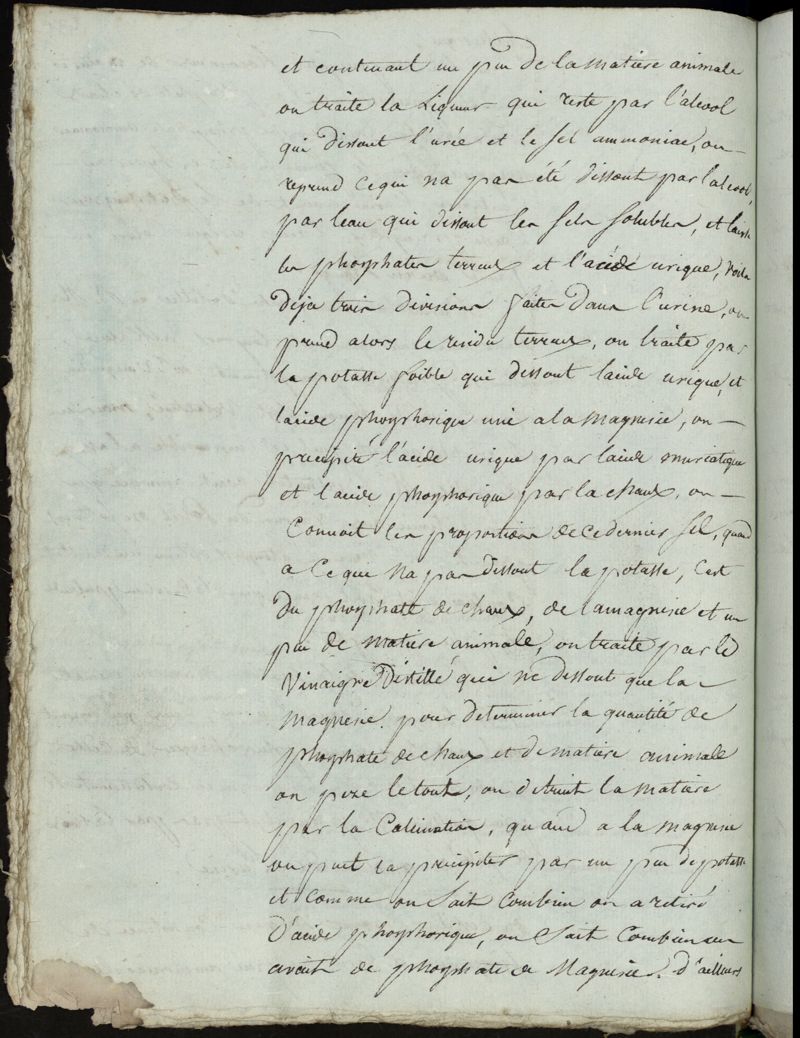 et contenant un peu de la matière animale
on traite la Liqueur qui reste par l'alcool
qui dissout l'urée et le sel ammoniac, on
reprend ce qui na pas été dissout par l'alcool,
par leau qui dissout les sels solubles, et laisse
les phosphates terreux et l'acide urique, voila
deja trois divisions faites dans l'urine, on
prend alors le residu terreux, on traite par
la potasse foible qui dissout lacide urique, et
lacide phosphorique uni a la magnesie, on
precipité l'acide urique par lacide muriatique
et l'acide phosphorique par la chaux, on
connoit les proportions de ce dernier sel, quand
a ce qui na pas dissout la potasse, c'est
du phosphate de chaux, de lamagnesie et un
peu de matiere animale, on traite par le
vinaigre Distillé qui ne dissout que la
magnesie. pour determiner la quantité de
phosphate de chaux et de matiere animale
on peze le tout, on detruit la matiere
par la Calcination, quand a la magnesie
on peut la precipiter par un peu de potasse
et comme on sait combien on a retiré
D'acide phosphorique, on sait combien on
avait de phosphate de Magnesie. d'ailleurs